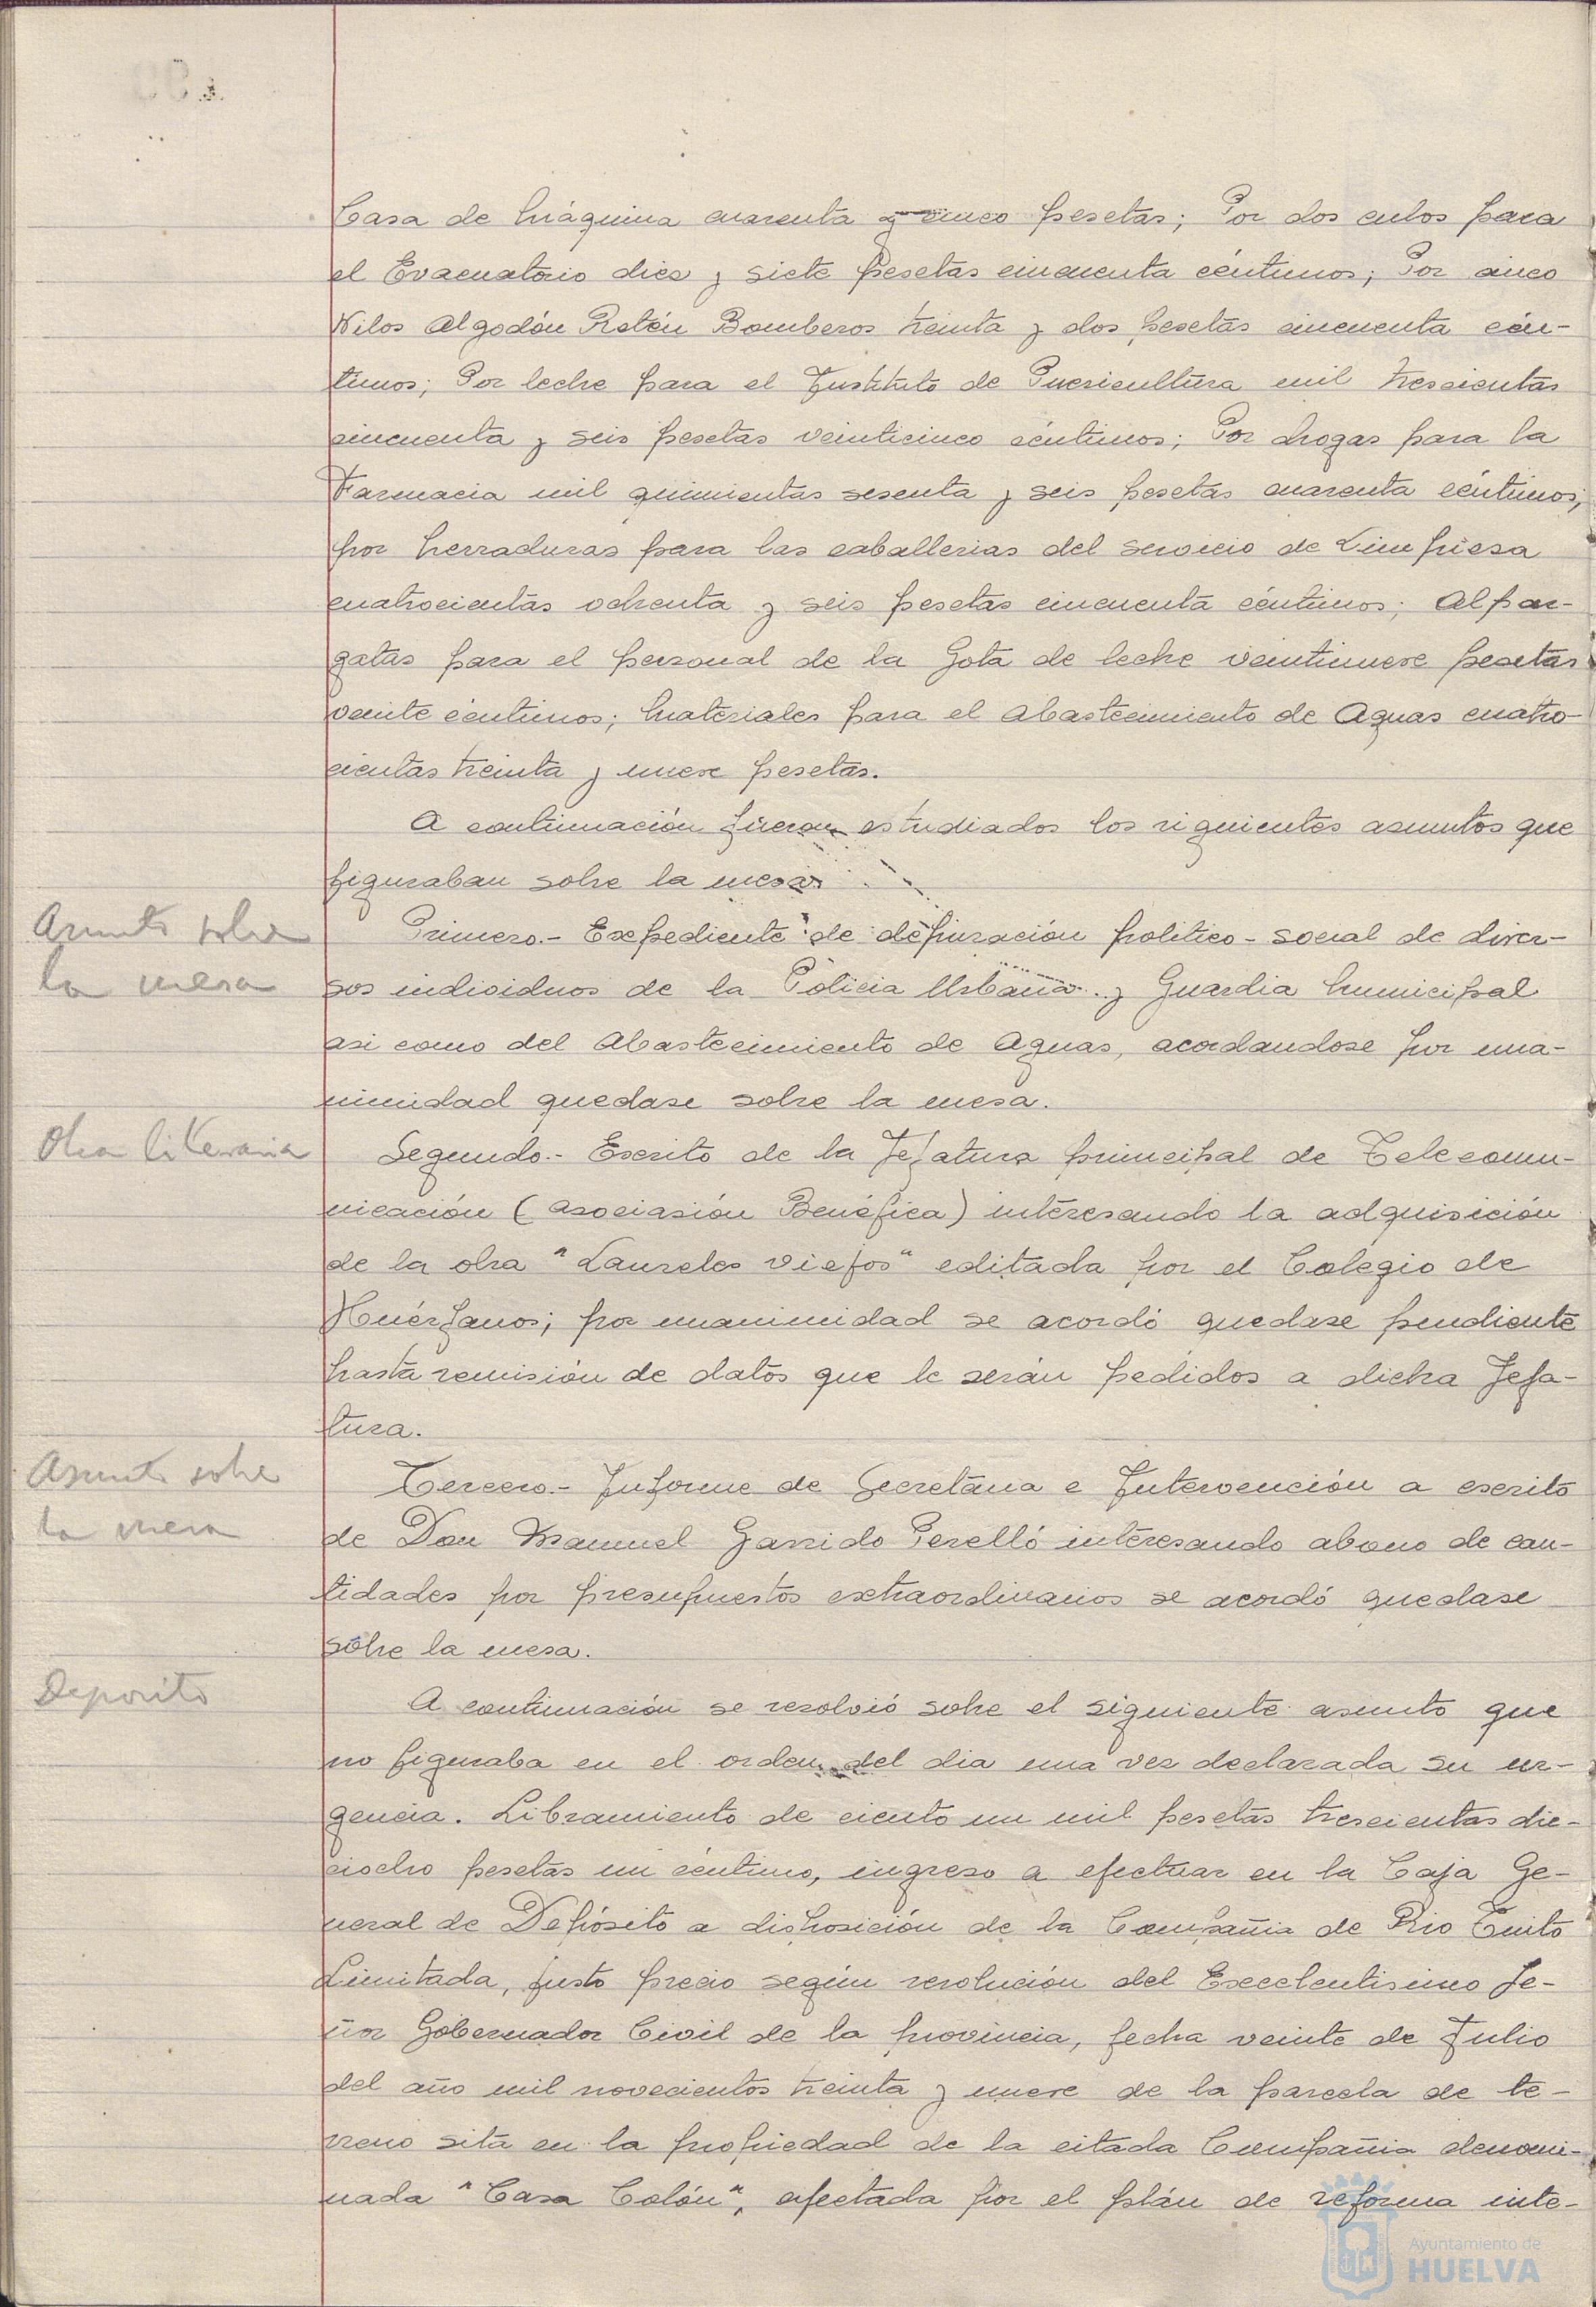 Casa de Máquina cuarenta y cinco pesetas; Por dos cubos para
el Evacuatorio diez y siete pesetas cincuenta céntimos; Por cinco
Kilos Algodón Retén Bomberos treinta y dos pesetas cincuenta cén-
timos; Por leche para el Instituto de Puericultura mil trescientas
cincuenta y seis pesetas veinticinco céntimos; Por drogas para la
Farmacia mil quinientas sesenta y seis pesetas cuarenta céntimos;
por herraduras para las caballerias del servicio de Limpieza
cuatrocientas ochenta y seis pesetas cincuenta céntimos; Alpar-
gatas para el personal de la Gota de leche veintinueve pesetas
veinte céntimos; Materiales para el Abastecimiento de Aguas cuatro-
cientas treinta y nueve pesetas.
A continuación fueron estudiados los siguientes asuntos que
figuraban sobre la mesa.
Asunto sobre
la mesa
Primero.- Expediente de depuración politico-social de diver-
sos individuos de la Policia Urbana y Guardia Municipal
asi como del Abastecimiento de Aguas, acordandose por una-
nimidad quedase sobre la mesa.
Obra literaria
Segundo.- Escrito de la Jefatura principal de Telecomu-
nicación (Asociasión Benéfica) interesando la adquisición
de la obra "Laureles viejos" editada por el Colegio de
Huérfanos; por unanimidad se acordó quedase pendiente
hasta remisión de datos que le serán pedidos a dicha Jefa-
tura.
Asunto sobre
la mesa
Tercero.- Informe de Secretaria e Intervención a escrito
de Don Manuel Garrido Perelló interesando abono de can-
tidades por presupuestos extraordinarios se acordó quedase
sobre la mesa.
Deposito
A continuación se resolvió sobre el siguiente asunto que
no figuraba en el orden del dia una vez declarada su ur-
gencia. Libramiento de ciento un mil pesetas trescientas die-
ciocho pesetas un céntimo, ingreso a efectuar en la Caja Ge-
neral de Depósito a disposición de la Compañia de Rio Tinto
Limitada, justo precio según resolución del Excelentisimo Se-
ñor Gobernador Civil de la provincia, fecha veinte de Julio
del año mil novecientos treinta y nueve de la parcela de te-
rreno sita en la propiedad de la citada Compañia denomi-
nada "Casa Colón", afectada por el plán de reforma inte-
Ayuntamiento de
HUELVA